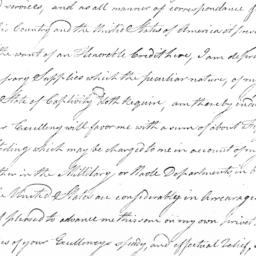 services, and as all manner of correspondance
Country and the United States of America at
the want of an Honorable Credit here, I am
Supplies which the peculiar nature, of my
State of Captivity doth require, am thereby
Excellency will favor me with a sum of about
which may be charged to me in account of my
in the Military, or Naval Departments, in
United States are considerably in arrearages
pleased to advance me this sum on my own
of your Excellencys speedy and effectual relief,